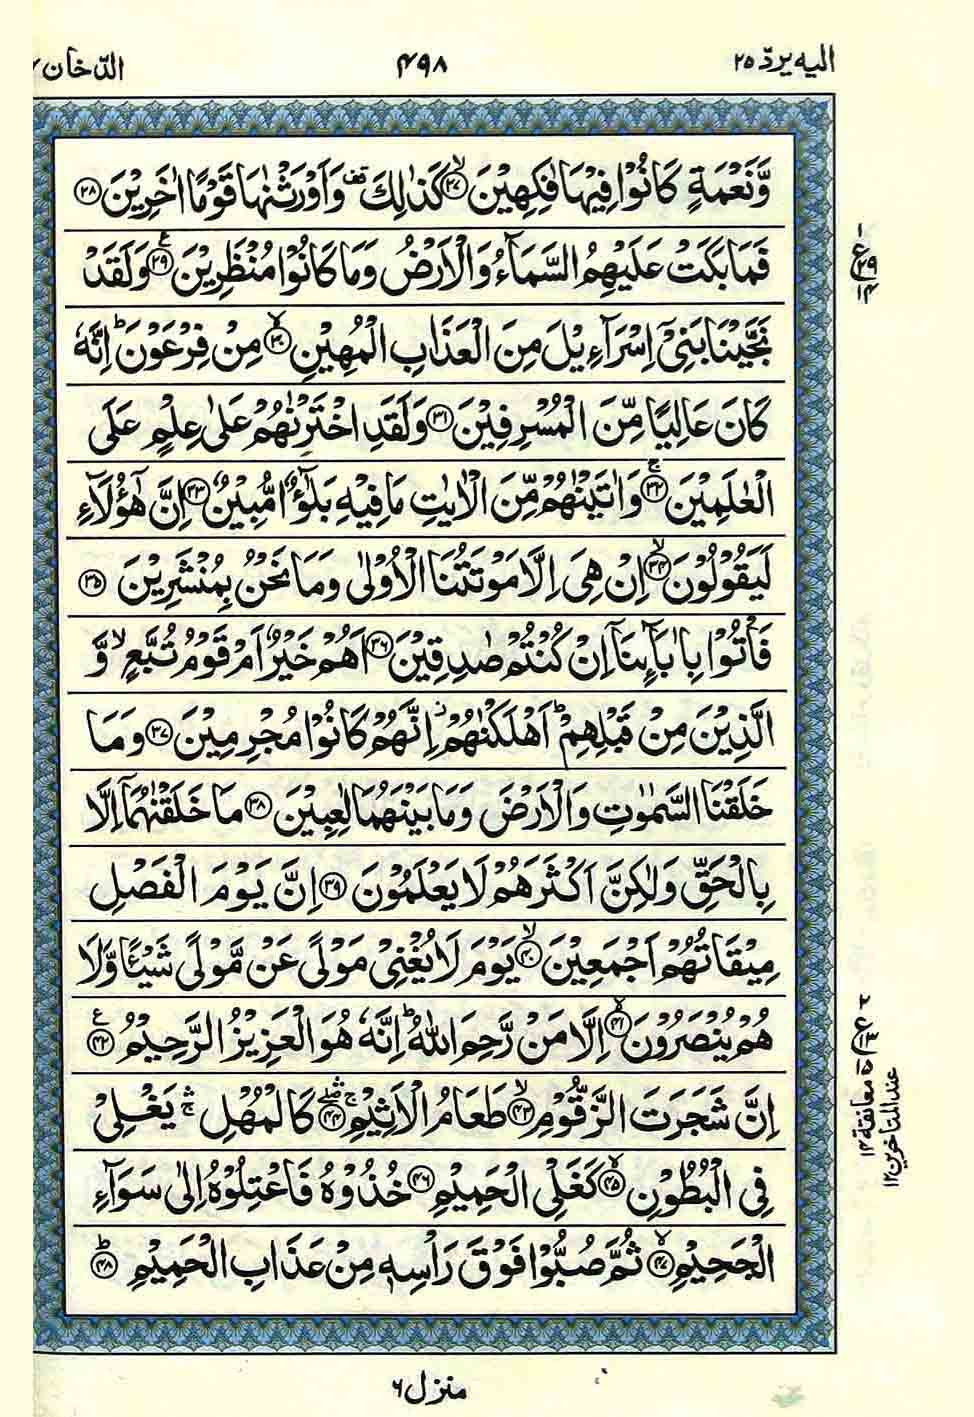 الیه یردّ ۲۵
۴۹۸
الدّخان
وَّنَعْمَةٍ كَانُوْا فِيْهَا فٰكِهِيْنَ ۙ۲۷ كَذٰلِكَ ۟ وَاَوْرَثْنٰهَا قَوْمًا اٰخَرِيْنَ ۲۸
فَمَا بَكَتْ عَلَيْهِمُ السَّمَآءُ وَالْاَرْضُ وَمَا كَانُوْا مُنْظَرِيْنَ ۲۹ع وَلَقَدْ
نَجَّيْنَا بَنِيْٓ اِسْرَآءِيْلَ مِنَ الْعَذَابِ الْمُهِيْنِ ۙ۳۰ مِنْ فِرْعَوْنَ ؕ اِنَّهٗ
كَانَ عَالِيًا مِّنَ الْمُسْرِفِيْنَ ۳۱ وَلَقَدِ اخْتَرْنٰهُمْ عَلٰى عِلْمٍ عَلَى
الْعٰلَمِيْنَ ۚ۳۲ وَاٰتَيْنٰهُمْ مِّنَ الْاٰيٰتِ مَا فِيْهِ بَلٰٓؤٌا مُّبِيْنٌ ۳۳ اِنَّ هٰٓؤُلَآءِ
لَيَقُوْلُوْنَ ۙ۳۴ اِنْ هِيَ اِلَّا مَوْتَتُنَا الْاُوْلٰى وَمَا نَحْنُ بِمُنْشَرِيْنَ ۳۵
فَاْتُوْا بِاٰبَآئِنَآ اِنْ كُنْتُمْ صٰدِقِيْنَ ۳۶ اَهُمْ خَيْرٌ اَمْ قَوْمُ تُبَّعٍ ۙ وَّ
الَّذِيْنَ مِنْ قَبْلِهِمْ ؕ اَهْلَكْنٰهُمْ ۡ اِنَّهُمْ كَانُوْا مُجْرِمِيْنَ ۳۷ وَمَا
خَلَقْنَا السَّمٰوٰتِ وَالْاَرْضَ وَمَا بَيْنَهُمَا لٰعِبِيْنَ ۳۸ مَا خَلَقْنٰهُمَآ اِلَّا
بِالْحَقِّ وَلٰكِنَّ اَكْثَرَهُمْ لَا يَعْلَمُوْنَ ۳۹ اِنَّ يَوْمَ الْفَصْلِ
مِيْقَاتُهُمْ اَجْمَعِيْنَ ۙ۴۰ يَوْمَ لَا يُغْنِيْ مَوْلًى عَنْ مَّوْلًى شَيْـًٔا وَّلَا
هُمْ يُنْصَرُوْنَ ۙ۴۱ اِلَّا مَنْ رَّحِمَ اللّٰهُ ؕ اِنَّهٗ هُوَ الْعَزِيْزُ الرَّحِيْمُ ۴۲ع
اِنَّ شَجَرَتَ الزَّقُّوْمِ ۙ۴۳ طَعَامُ الْاَثِيْمِ ۛۚ۴۴ كَالْمُهْلِ ۛۚ يَغْلِيْ
فِي الْبُطُوْنِ ۙ۴۵ كَغَلْيِ الْحَمِيْمِ ۴۶ خُذُوْهُ فَاعْتِلُوْهُ اِلٰى سَوَآءِ
الْجَحِيْمِ ۙ۴۷ ثُمَّ صُبُّوْا فَوْقَ رَاْسِهٖ مِنْ عَذَابِ الْحَمِيْمِ ؕ۴۸
۱
ع ۲۹
۱۴
۲
ع
معانقة ۱۲
عند المتأخرين ۱۲
منزل ۶